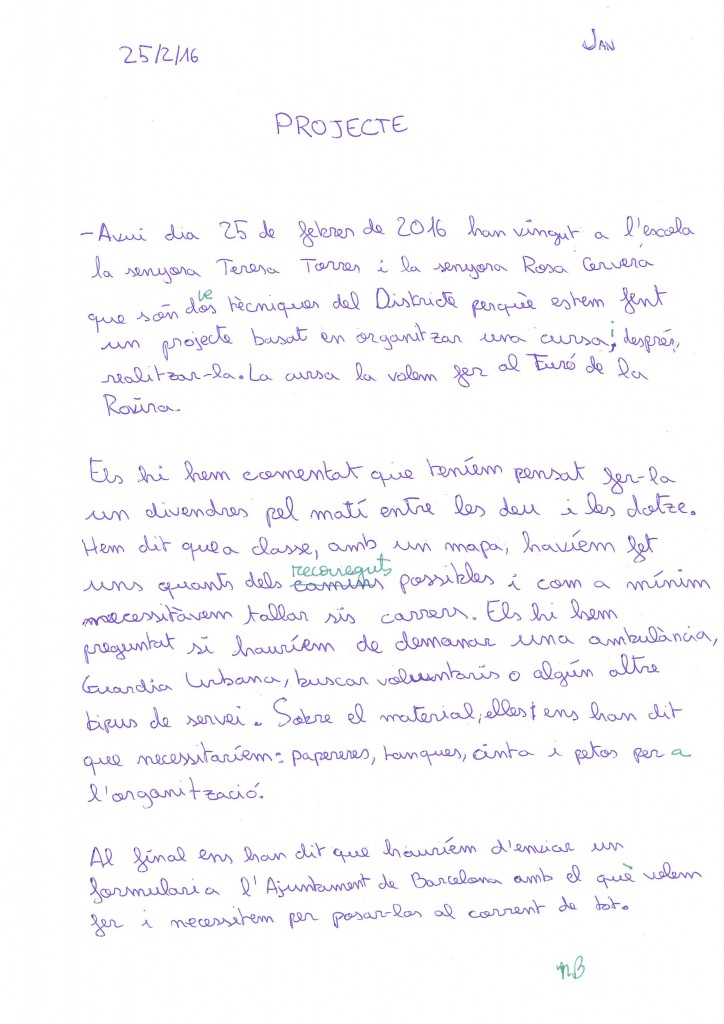 25/2/16
JAN
PROJECTE
-Avui dia 25 de febrer de 2016 han vingut a l'escola
la senyora Teresa Torres i la senyora Rosa Cervera
que són dos tècniques del Districte perquè estem fent
un projecte basat en organitzar una cursa i, després,
realitzar-la. La cursa la volem fer al Turó de la
Rovira.
Els hi hem comentat que teníem pensat fer-la
un divendres pel matí entre les deu i les dotze.
Hem dit que a classe, amb un mapa, havíem fet
recorreguts
uns quants dels camins possibles i com a mínim
necessitàvem tallar sis carrers. Els hi hem
preguntat si hauríem de demanar una ambulància,
Guardia Urbana, buscar voluntaris o algún altre
tipus de servei. Sobre el material, elles ens han dit
que necessitaríem: papereres, tanques, cinta i petos per a
l'organització.
Al final ens han dit que hauríem d'enviar un
formulari a l'Ajuntament de Barcelona amb el què volem
fer i necessitem per posar-los al corrent de tot.